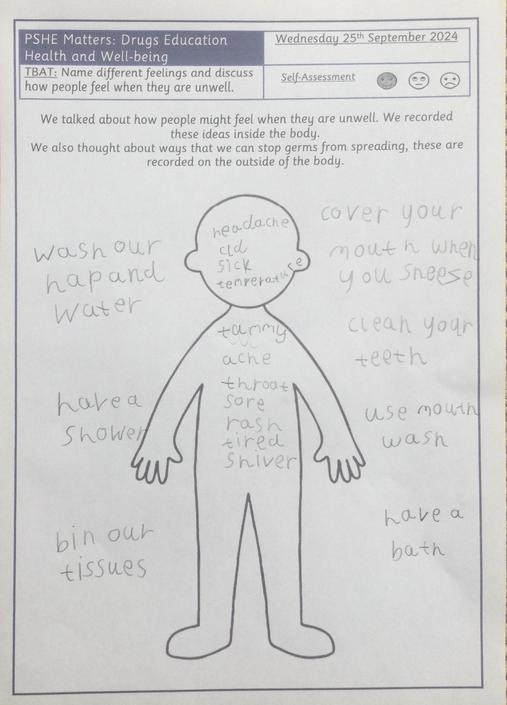 PSHE Matters: Drugs Education
Health and Well-being
Wednesday 25th September 2024
TBAT: Name different feelings and discuss
how people feel when they are unwell.
Self-Assessment
We talked about how people might feel when they are unwell. We recorded
these ideas inside the body.
We also thought about ways that we can stop germs from spreading, these are
recorded on the outside of the body.
headache
cld
sick
temreratuse
tammy
ache
throat
sore
rash
tired
shiver
wash our
hapand
water
have a
shower
bin our
tissues
cover your
mouth when
you sneese
clean your
teeth
use mouth
wash
have a
bath